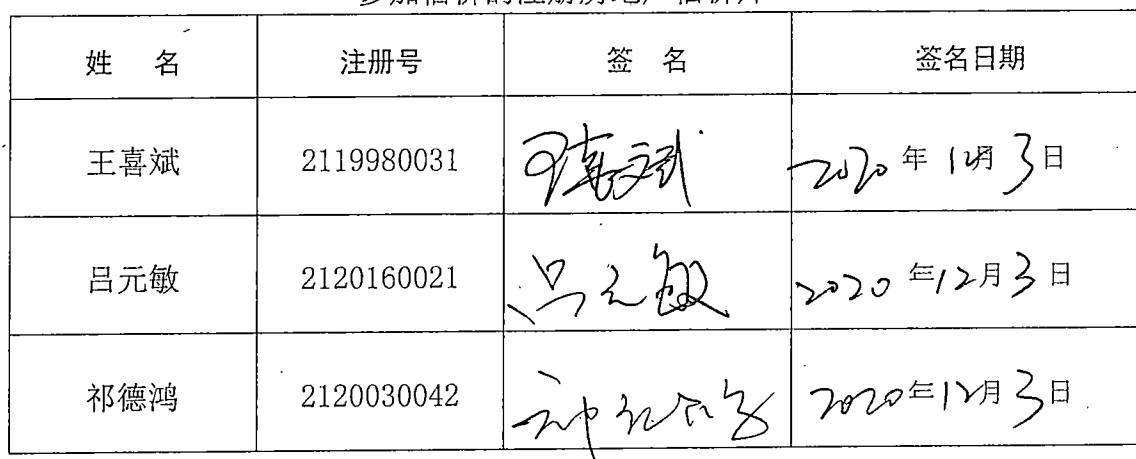 姓 名 注册号 签 名 签名日期
王喜斌 2119980031 王喜斌 2020年12月3日
吕元敏 2120160021 吕元敏 2020年12月3日
祁德鸿 2120030042 2020年12月3日